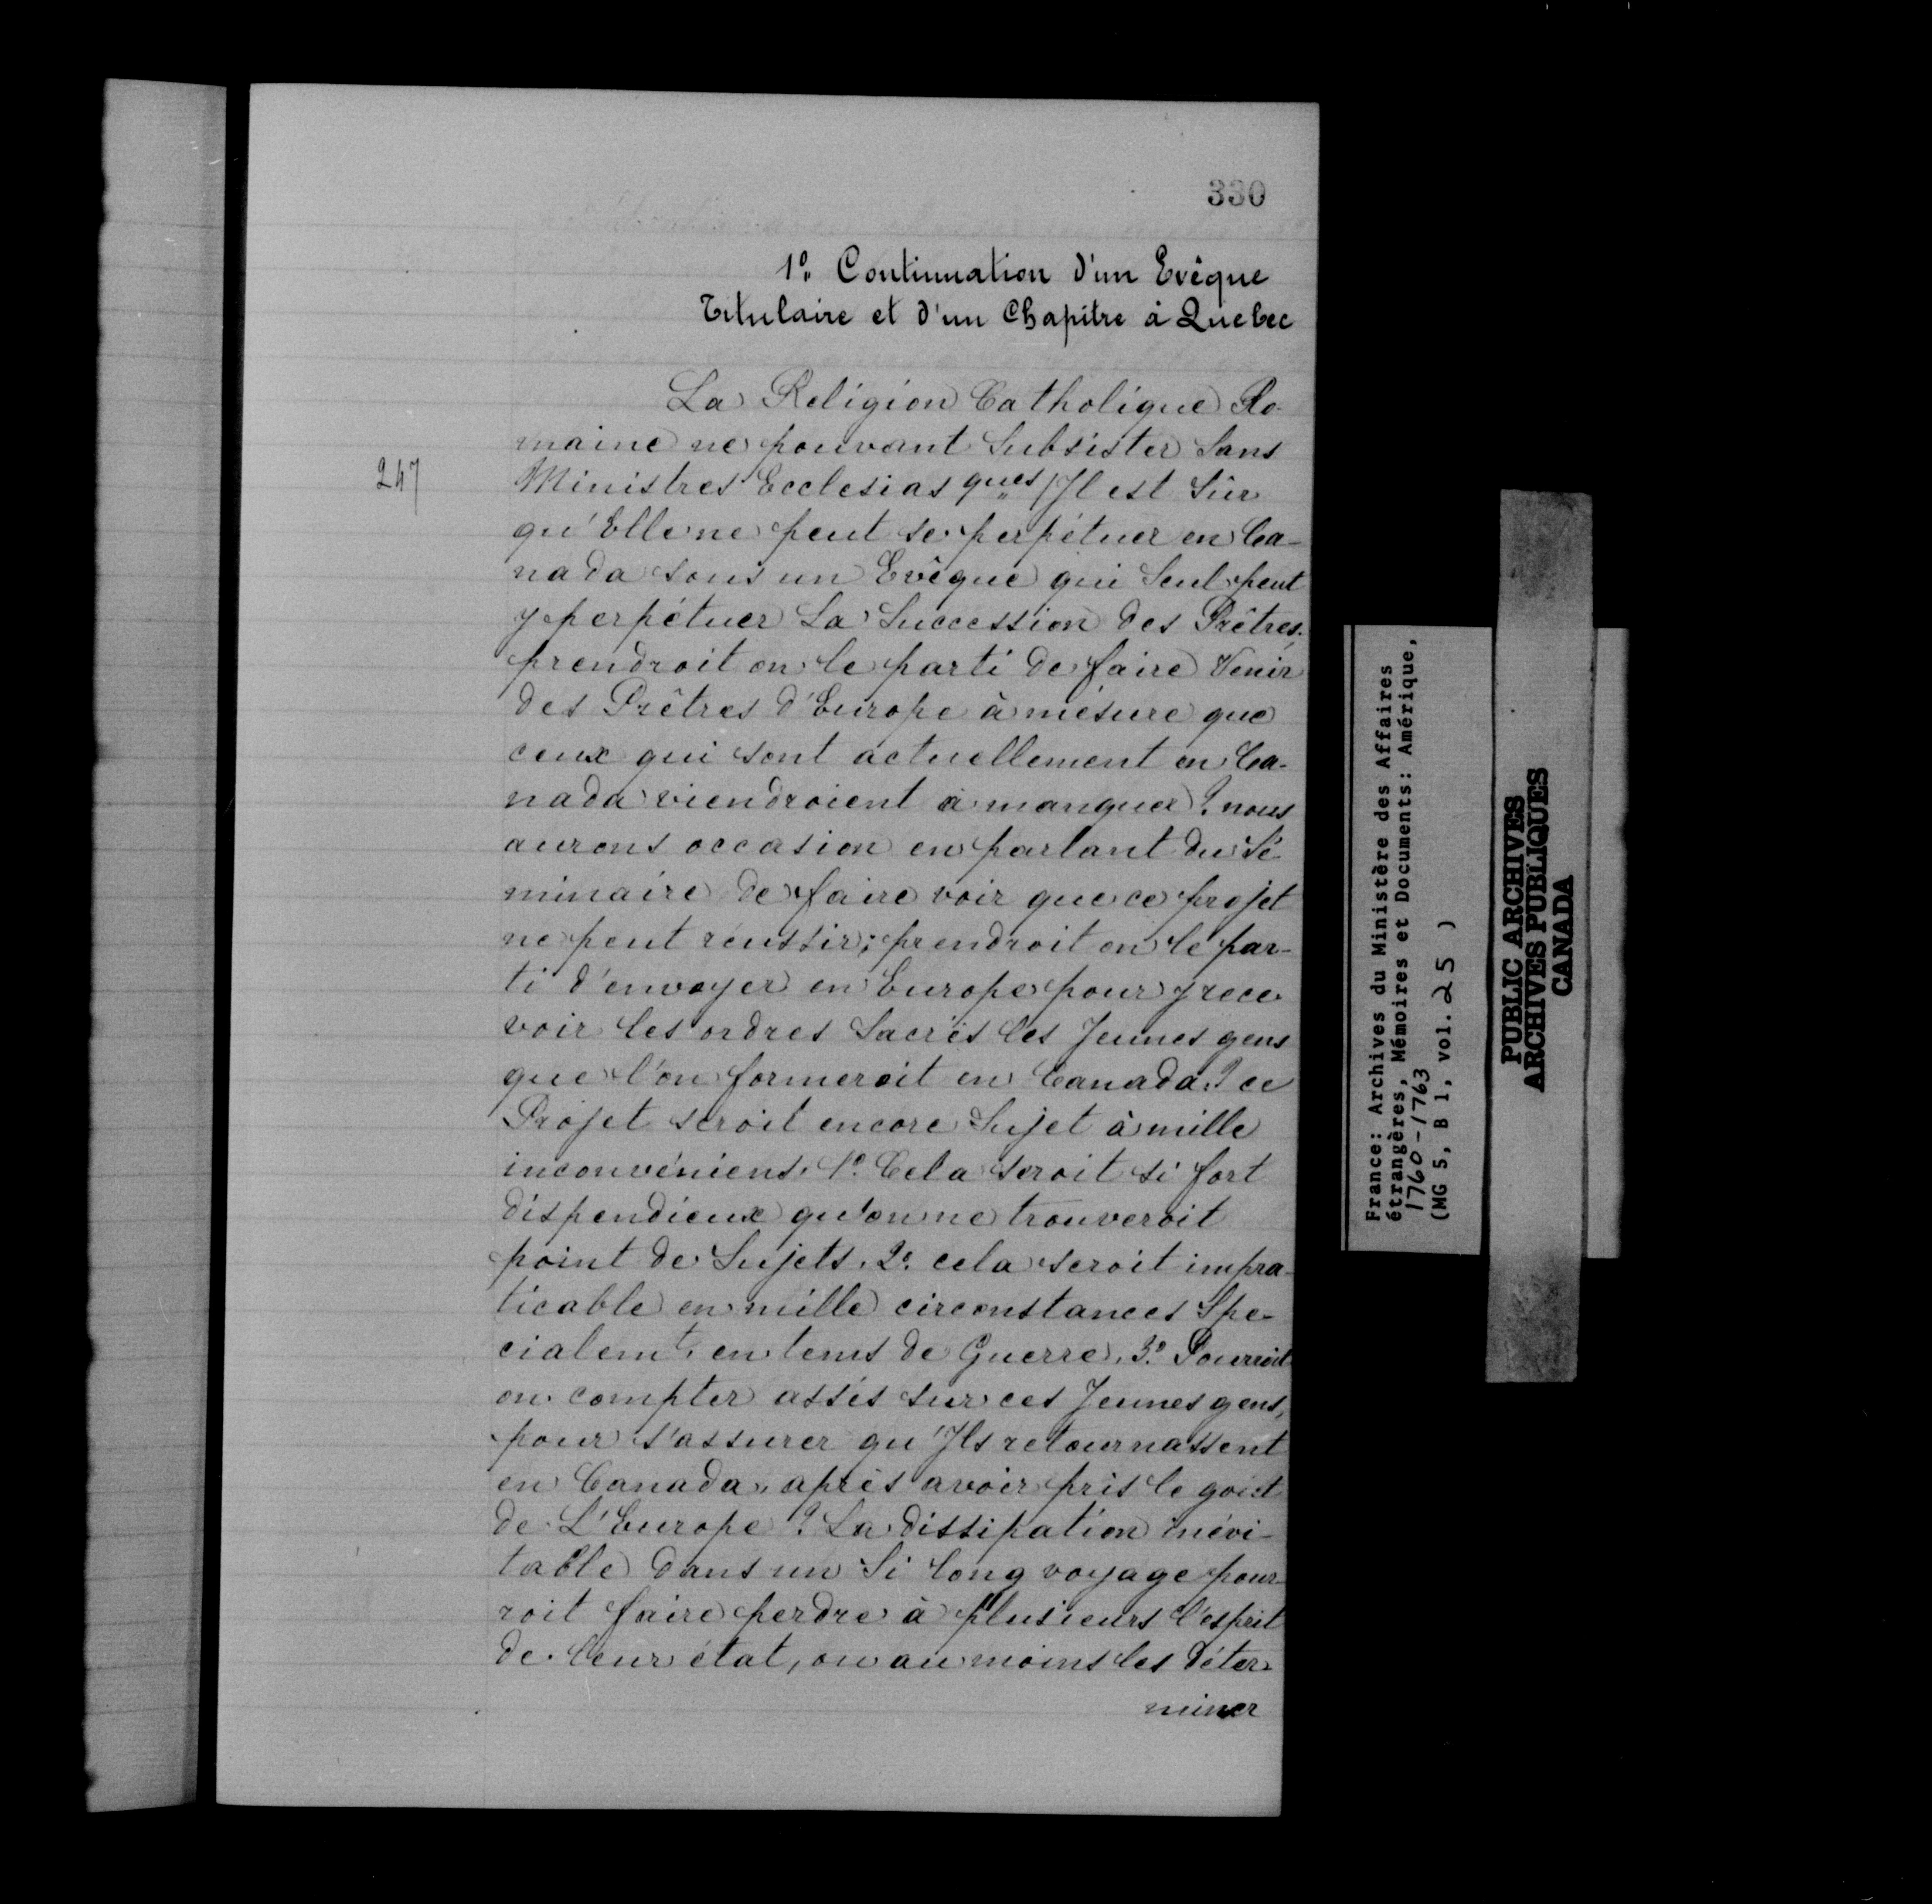 330
1º. Continuation d'un Evêque
Titulaire et d'un Chapitre à Quebec
La Religion Catholique Ro-
maine ne pouvant Subsister Sans
247
Ministres Ecclesiasques / Il est Sûr
qu'Elle ne peut se perpétuer en Ca-
nada sans un Evêque qui Seul peut
y perpétuer La Succession des Prêtres.
prendroit on le parti de faire Venir
des Prêtres d'Europe à mésure que
ceux qui sont actuellement en Ca-
nada viendroient à manquer ? nous
aurons occasion en parlant du Sé
minaire de faire voir que ce projet
ne peut réussir; prendroit on le par-
ti d'envoyer en Europe pour y rece
voir les ordres Sacrés les Jeunes gens
que l'on formeroit en Canada ? ce
Projet seroit encore Sujet à mille
inconvéniens. 1º. Cela seroit si fort
dispendieux qu'on ne trouveroit
point de Sujets. 2º. cela seroit impra-
ticable en mille circonstances Spe-
cialemt. en tems de Guerre. 3º. Pourroit
on compter assés sur ces Jeunes gens,
pour s'assurer qu'Ils retournassent
en Canada, après avoir pris le goût
de L'Europe ? La dissipation inévi-
table dans un Si long voyage pour-
roit faire perdre à plusieurs l'esprit
de leur état, ou au moins les déter-
miner
France: Archives du Ministère des Affaires
étrangères, Mémoires et Documents: Amérique,
1760-1763
(MG 5, B 1, vol. 25 )
PUBLIC ARCHIVES
ARCHIVES PUBLIQUES
CANADA